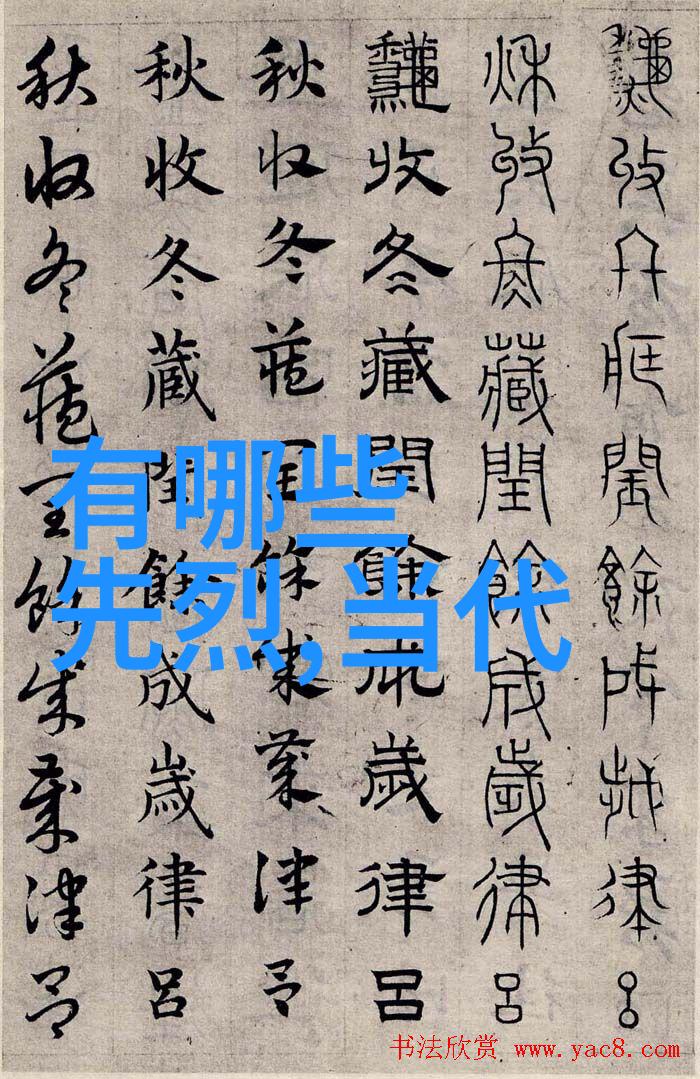 秋收冬藏閏餘成歲律呂
秋收冬藏閏餘成歲律呂
龝收冬藏閏餘成歲律呂
秋收冬藏閏餘成歲律呂
秋收冬蔵閏餘成歲律呂
秋收冬藏閏餘成歲律呂
有哪些
先烈,当代
书法欣赏 www.yac8.com